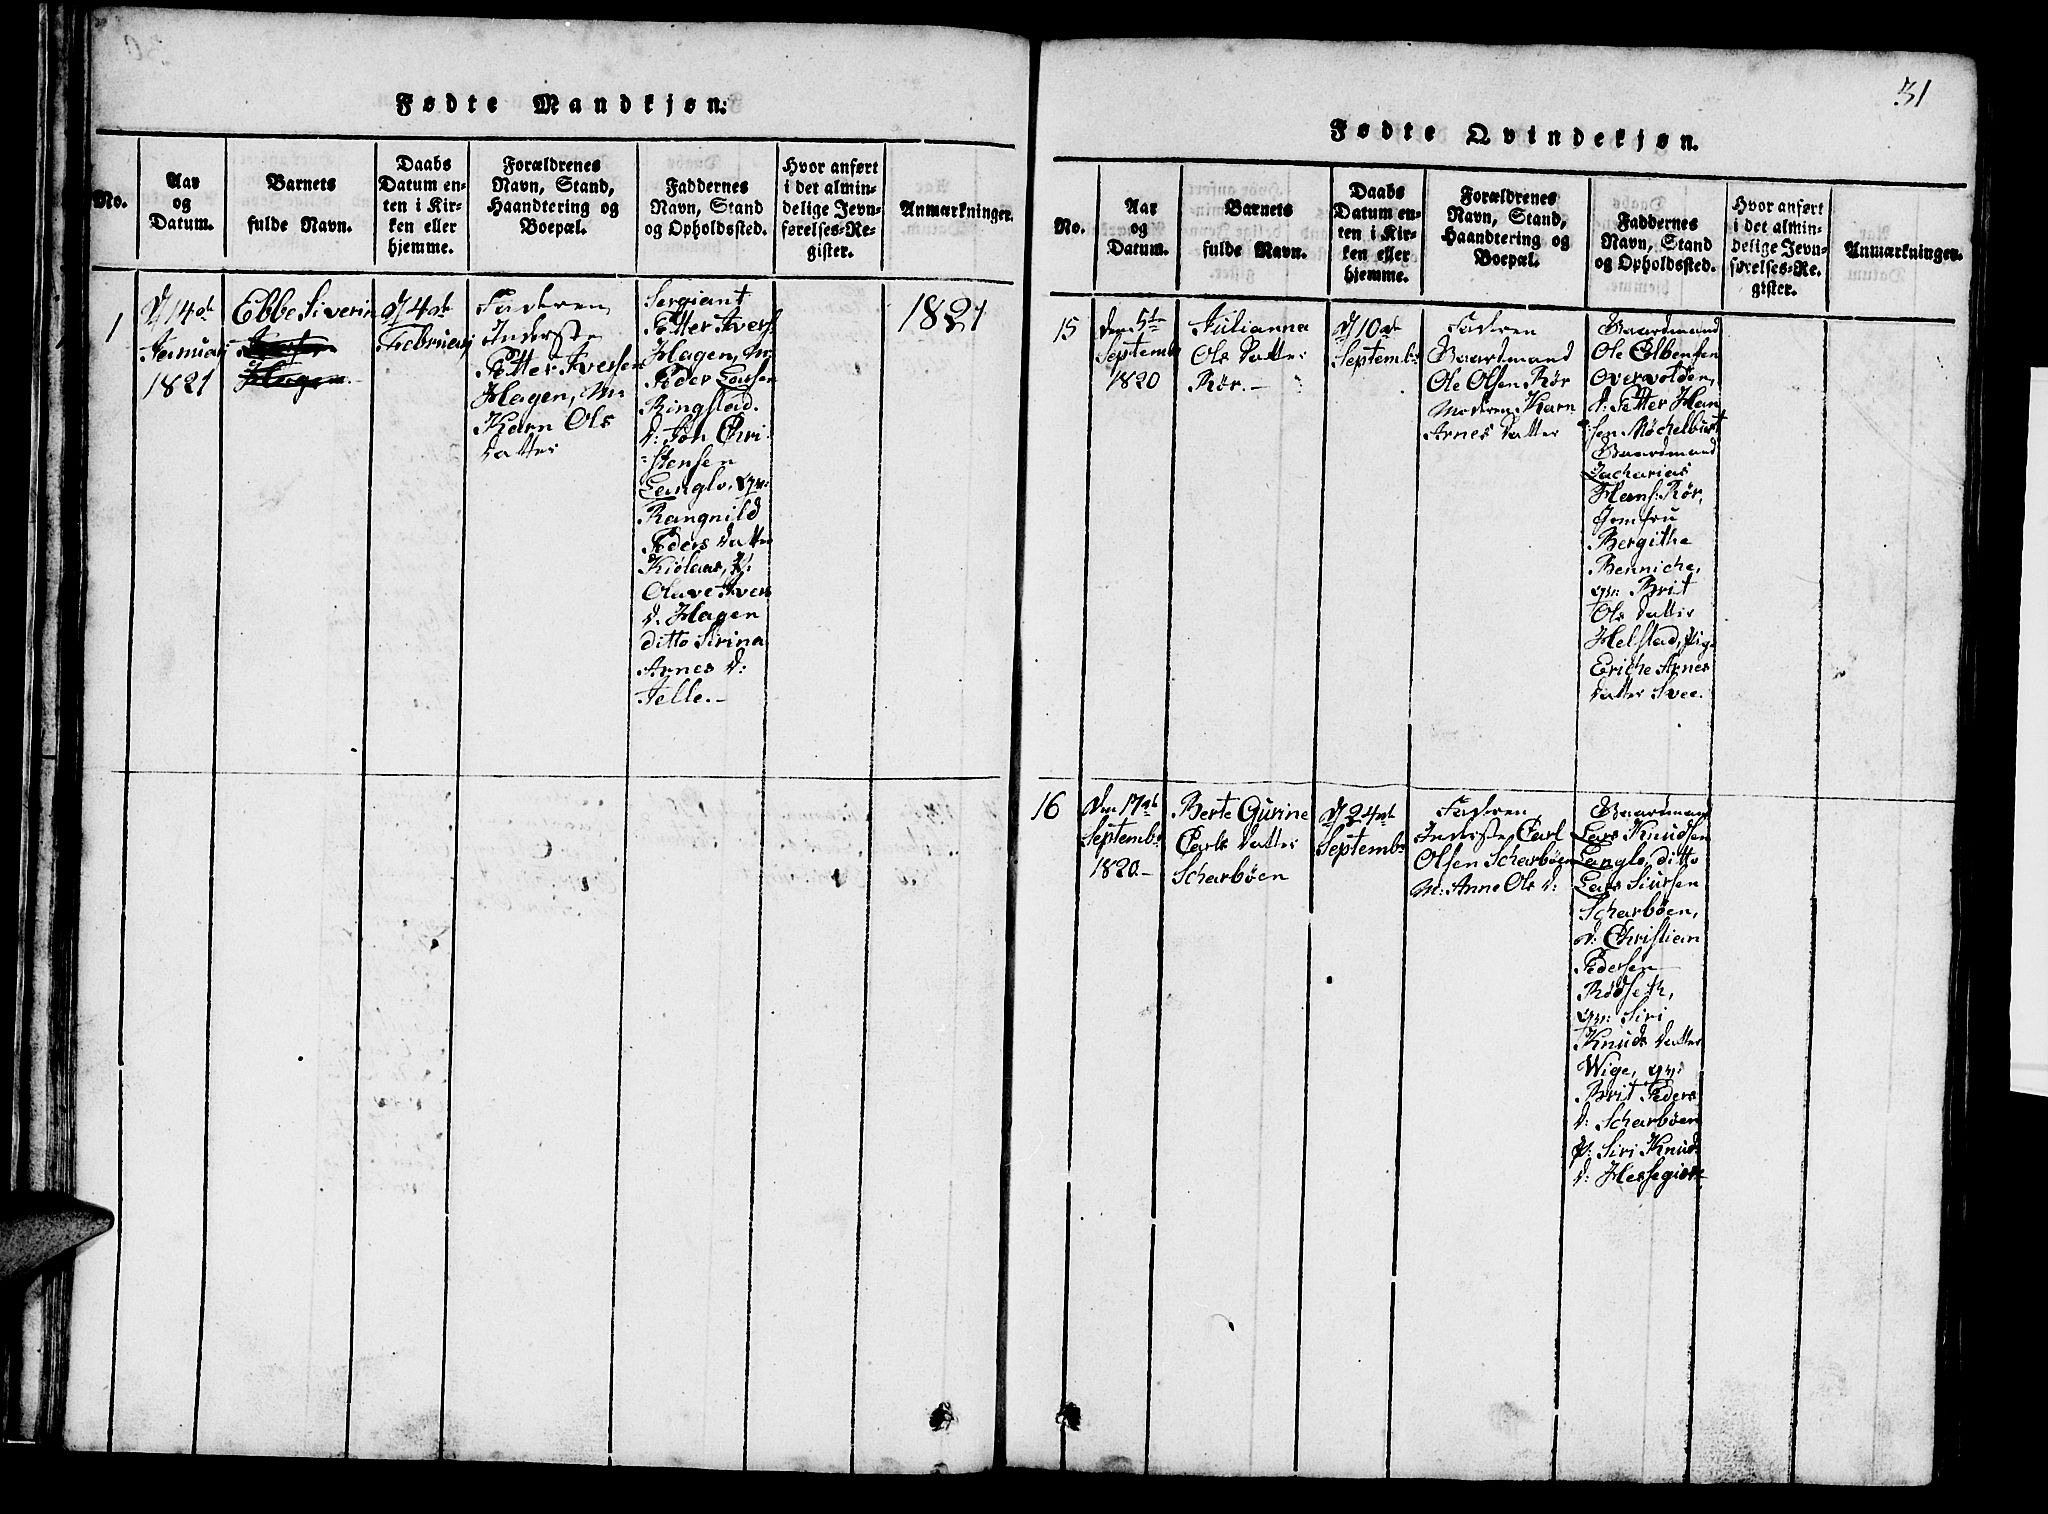 Fødte Mandkjøn:
No.
Aar
og
Datum.
Barnets
fulde Navn.
Daabs
Datum en-
ten i Kir-
ken eller
hjemme.
Forældrenes
Navn, Stand,
Haandtering og
Boepæl.
Faddernes
Navn, Stand
og Opholdssted.
Hvor anført
i det almin-
delige Jevn-
førelses-Re-
gister.
Anmærkninger.
1
d/14de
Januari
1821
Ebbe Siverin
Hagen
d/4de
Februari
Faderen
Inderste
Petter Iversen
Hagen, M:
Karn Ols
datter
Sergiant
Petter Ivers:
Hagen,
Peder Larsen
Ringstad.
d: Jon Chri
-stensen
Langlo, qv:
Rangnild
Peders datter
Kiølaas, P:
Olave Ivers
d. Hagen
ditto Sirina
Arnes d:
Telle.-
1821
31
Fødte Qvindekjøn.
No.
Aar
og
Datum.
Barnets
fulde Navn.
Daabs
Datum en-
ten i Kir-
ken eller
hjemme.
Forældrenes
Navn, Stand,
Haandtering og
Boepæl.
Faddernes
Navn, Stand
og Opholdssted.
Hvor anført
i det almin-
delige Jevn-
førelses-Re-
gister.
Anmærkninger.
15
den 5te
Septemb
1820
Julianna
Ols datter
Rör.-
d/10de
Septembr
Faderen
Gaardmand
Ole Olsen Rör
Moderen Karn
Arnes datter
Gaardmand
Ole Colbensen
Overvolden,
d: Petter Han
sen Møchelbust
Gaardmand
Zacharias
Hans: Rör,
Jomfru
Bergithe
Benniche,
qv: Brit
Ols datter
Helstad, Pige
Eriche Arnes
datter Svee.
16
den 17de
Septembr
1820.-
Berte Gurine
Carls datter
Scharbøen
d/24de
Septembr
Faderen
Inderste Carl
Olsen Scharbøen
M: Anne Ols d:
Gaardmand
Lars Knudsen
Langlo, ditto
Lars Siursen
Scharbøen,
d: Christian
Pedersen
Rødseth,
qv: Siri
Knuds datter
Wige, qv:
Brit Peders
d: Scharbøen
P: Siri Knuds
d: Hessegiere